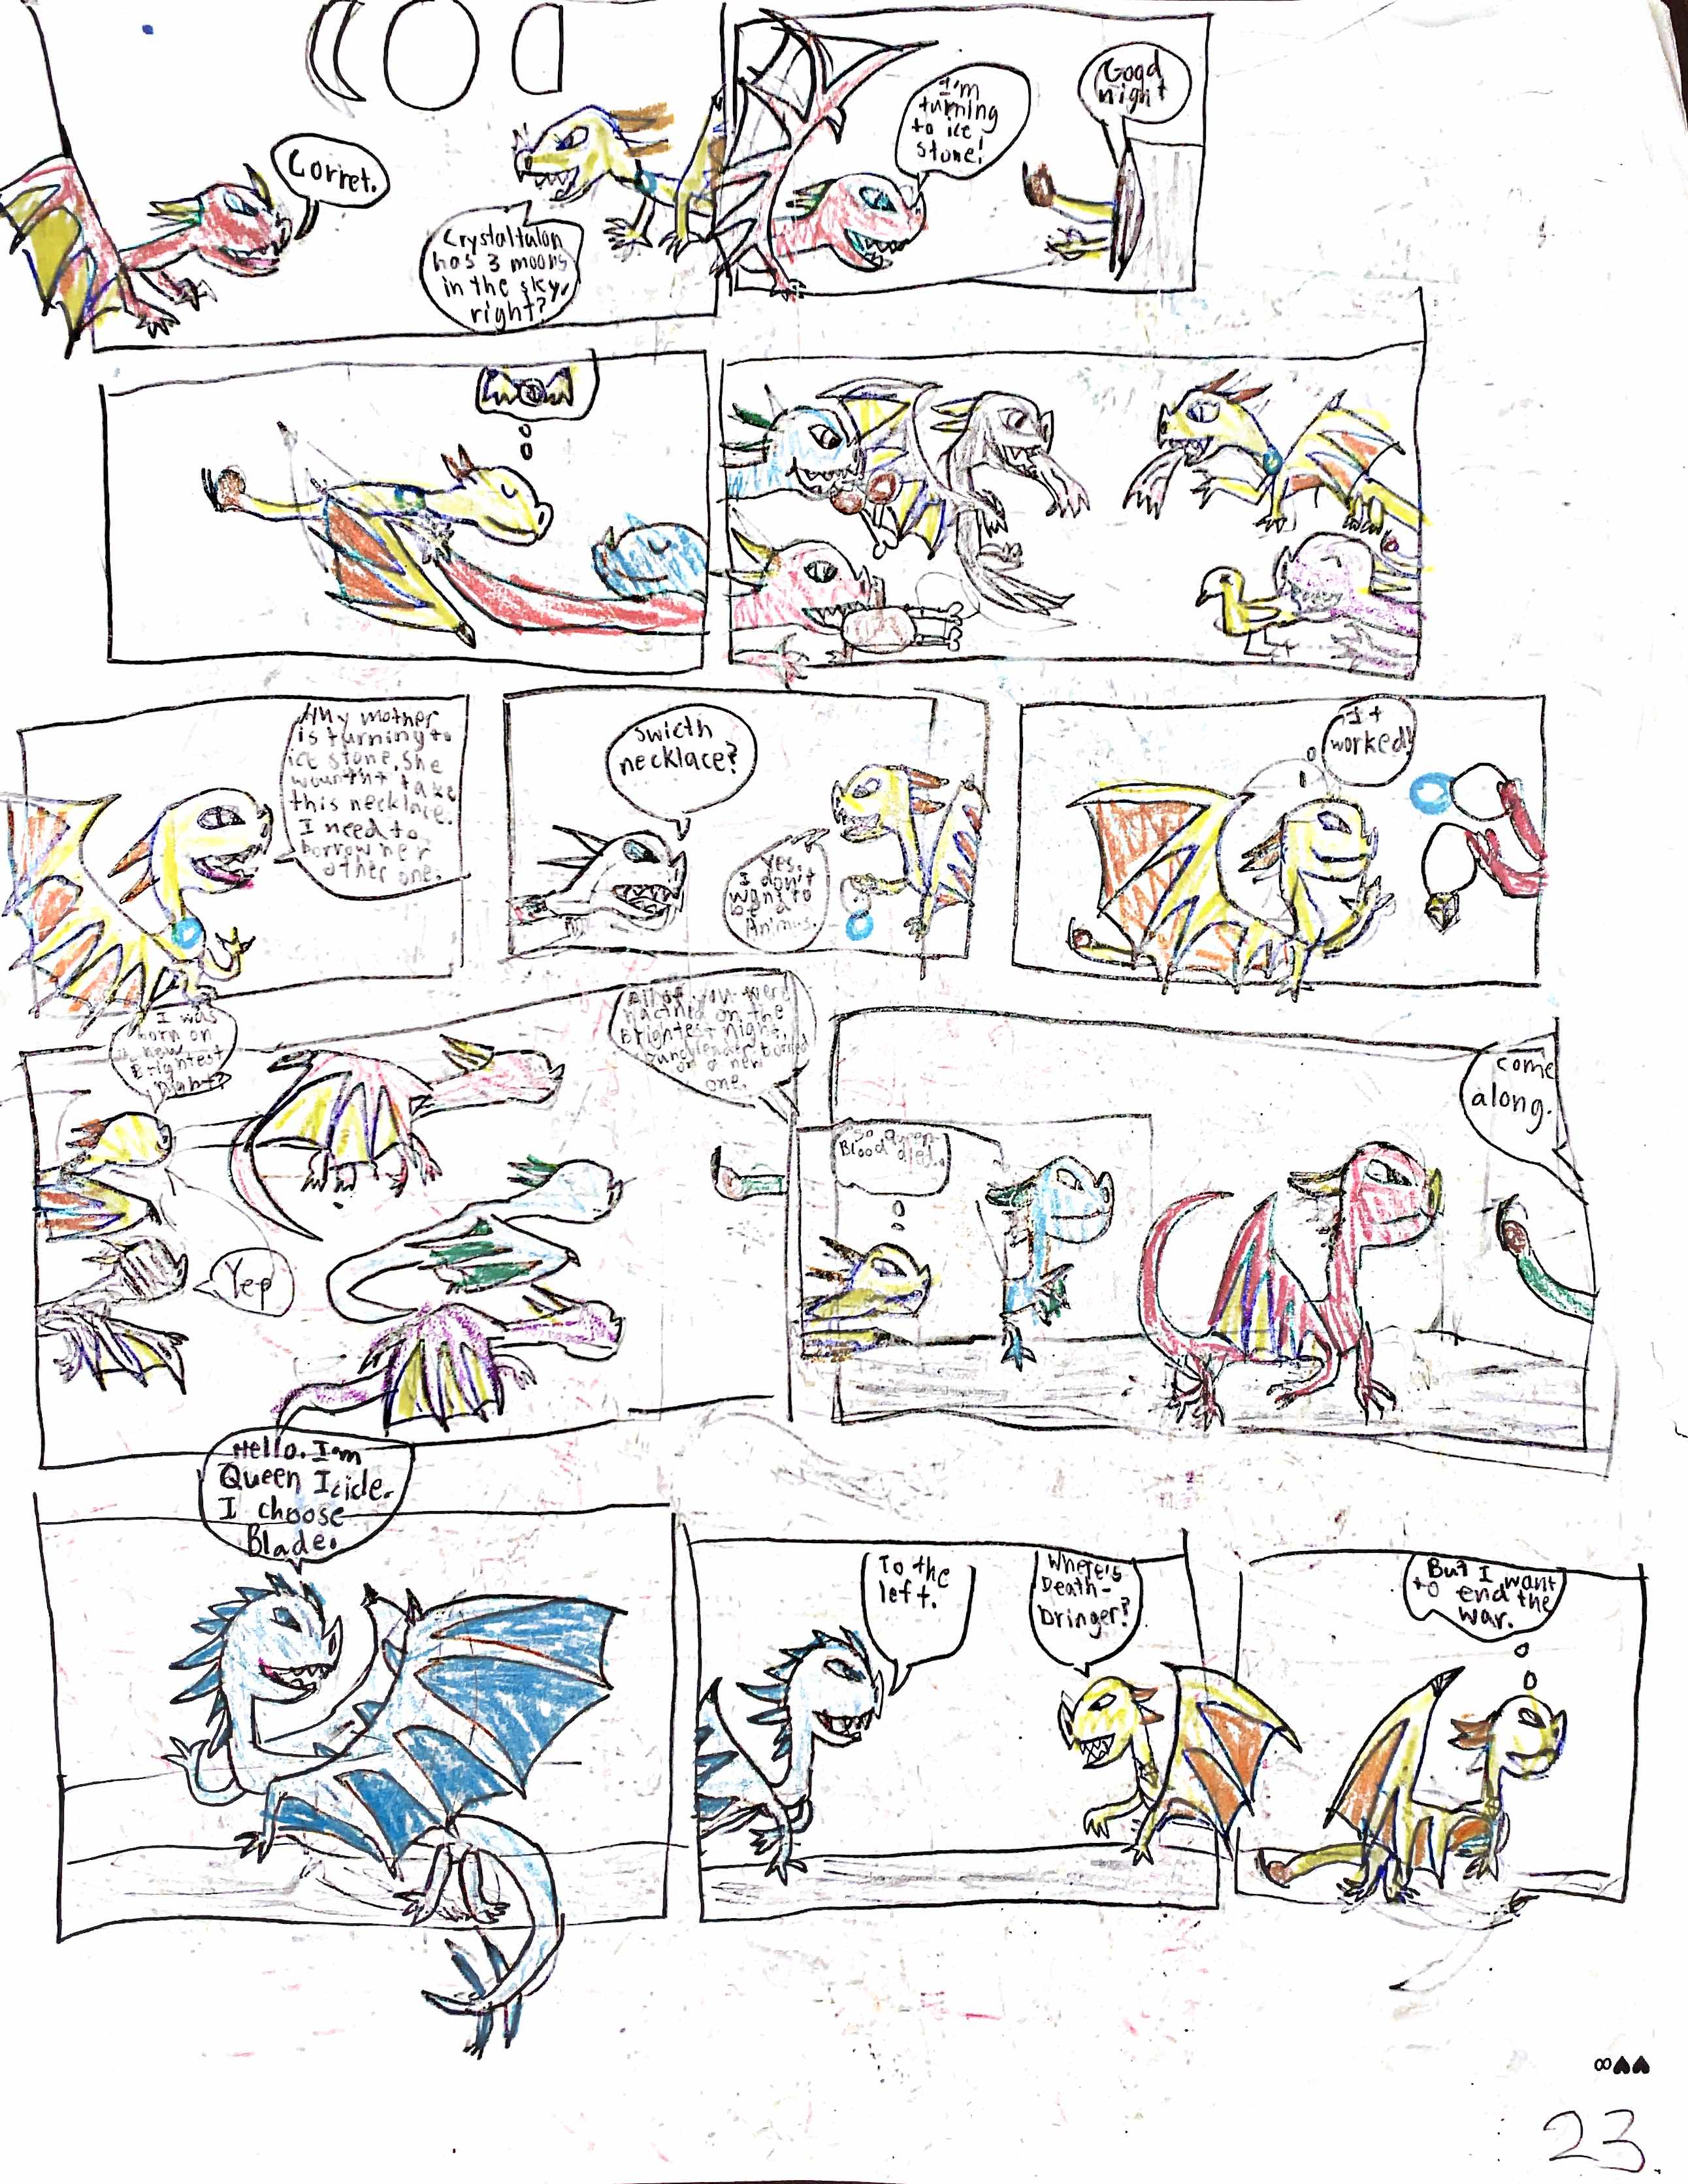 Corret.
Crystaltalon
has 3 moons
in the sky,
right?
I'm
turning
to ice
stone!
Good
night
My mother
is turning to
ice stone. She
wounth't take
this necklace.
I need to
borrow her
other one.
Swicth
necklace?
Yes,
I don't
want to
be a
Animus.
It
worked!
I was
born on
new
Brightest
night?
Yep
All of you were
hatched on the
Brightest night,
on a new
one.
so Queen
Blood died.
come
along.
Hello. I am
Queen Icicle.
I choose
Blade.
To the
left.
Where's
Death-
bringer?
But I want
to end the
war.
23